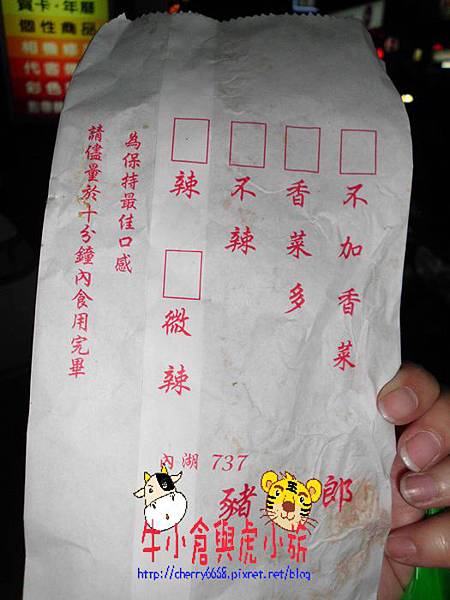 賀卡·年曆
個性商品
不加香菜
香菜多
不辣
辣
微辣
為保持最佳口感
請儘量於十分鐘內食用完畢
內湖 737
豬 郎
牛小倉與虎小妞
http://cherry6668.pixnet.net/blog